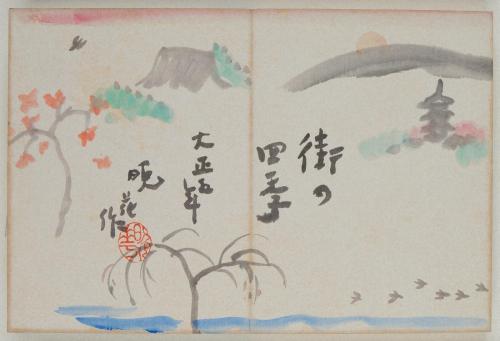 街の
四季
大正五年
晩花作